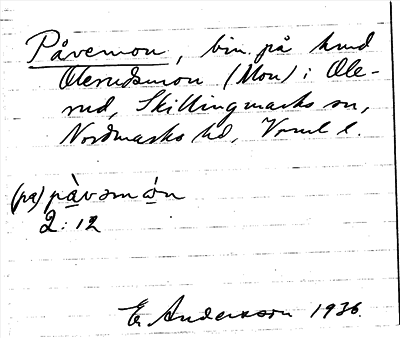 Påvemon, bin. på hmd
Olerudsmon (Mon) i Ole-
rud, Skillingmarks sn,
Nordmarks hd, Vrml l.
(pa) pàvəmòn
2:12
E. Andersson 1936.